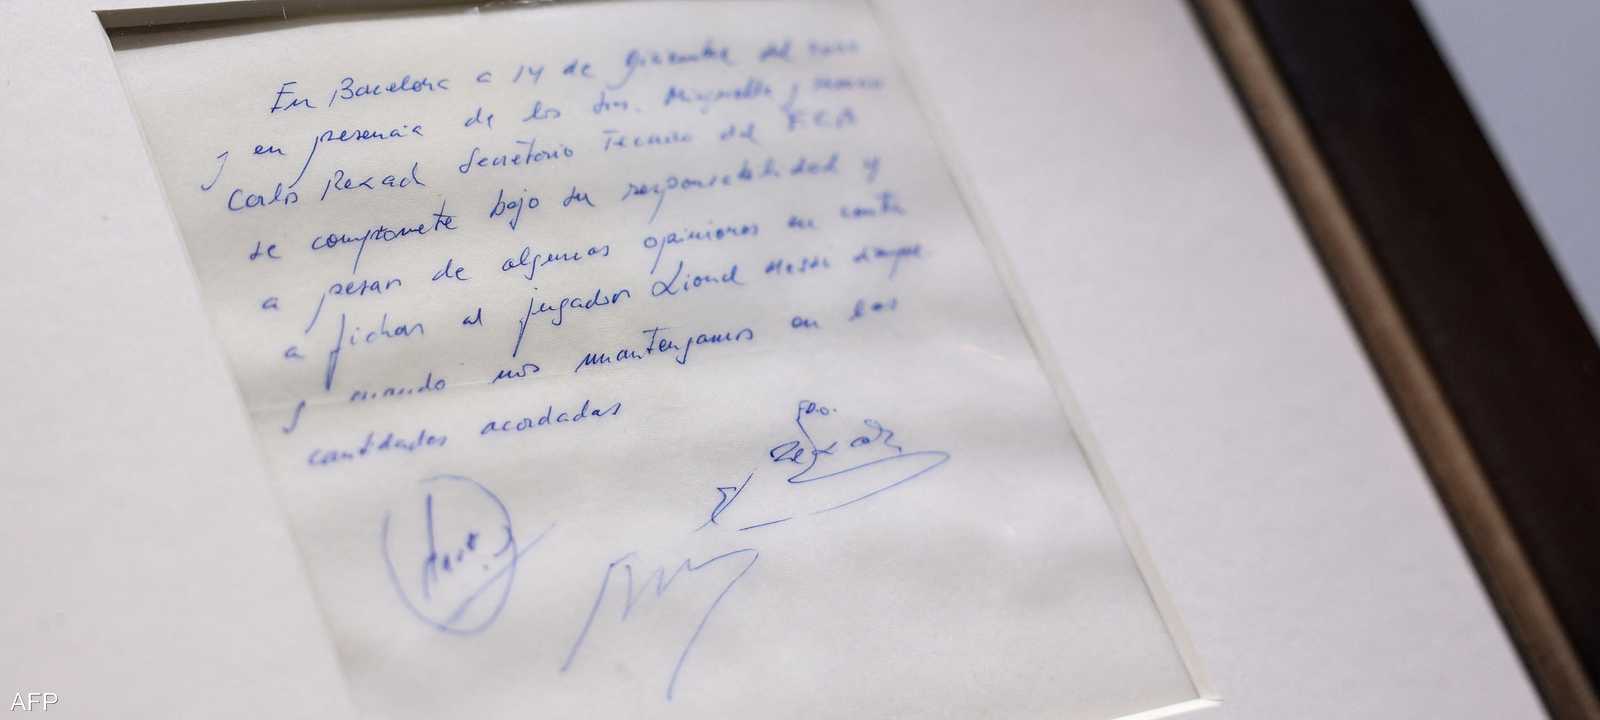 En Barcelona a 14 de Diciembre del 2000
y en presencia de los Srs. Minguella y Horacio
Carlos Rexach Secretario Técnico del F.C.B
se compromete bajo su responsabilidad y
a pesar de algunas opiniones en contra
a fichar al jugador Lionel Messi siempre
y cuando nos mantengamos en las
cantidades acordadas
FDO.
AFP